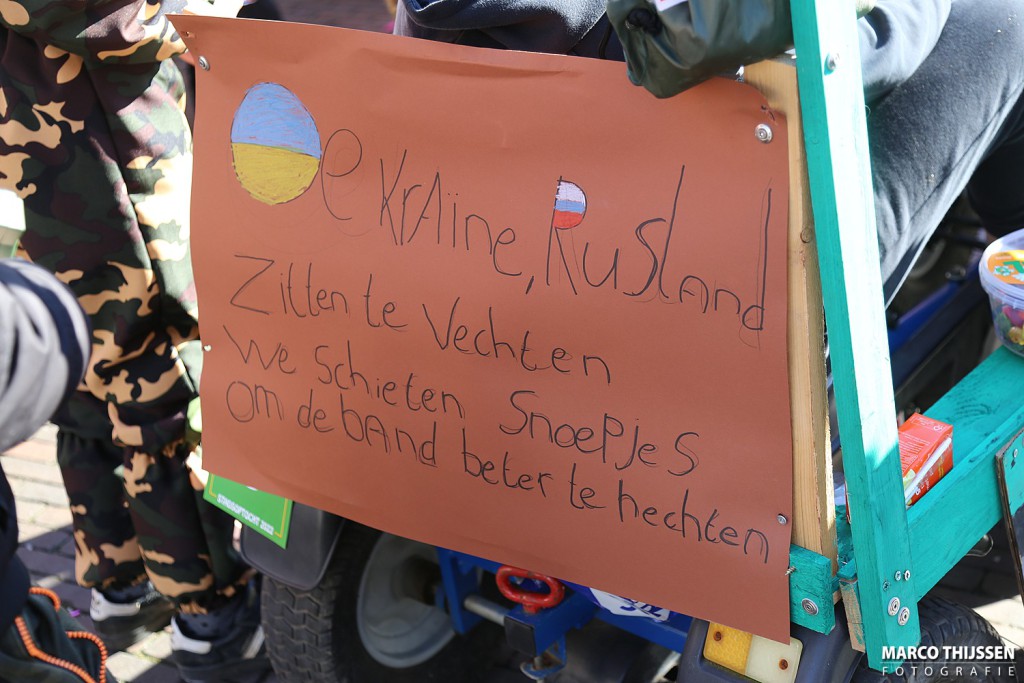 Oekraïne, Rusland
Zitten te Vechten
We Schieten Snoepjes
Om de band beter te hechten
STADSOPTOCHT 2022
MARCO THIJSSEN
FOTOGRAFIE